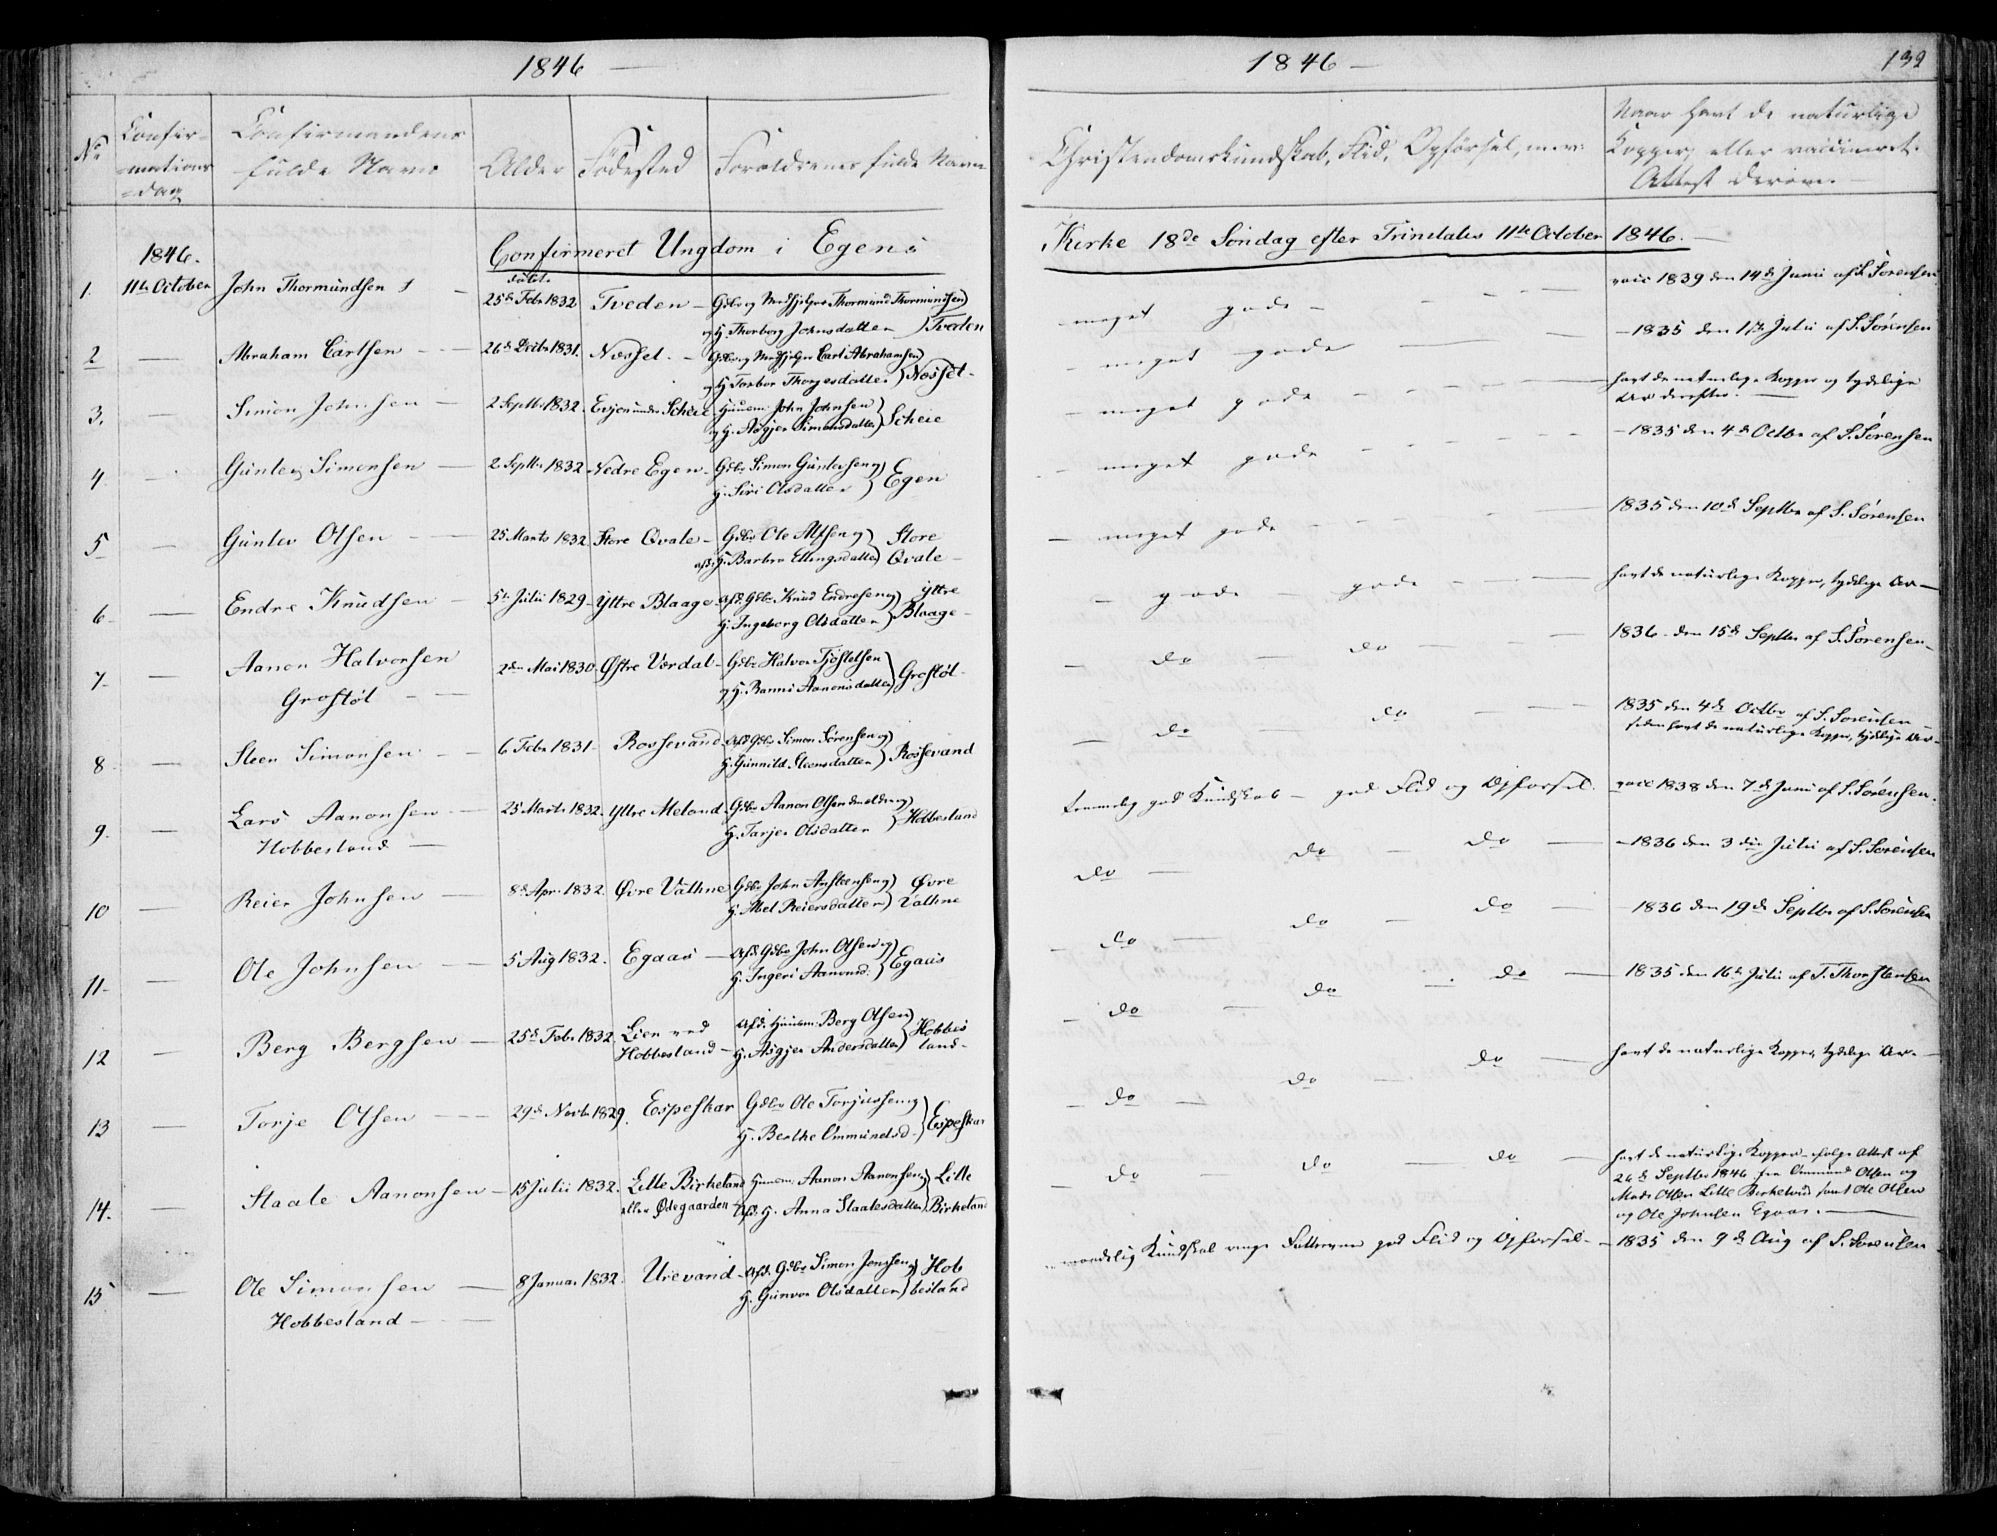 1846 —
1846 —
139
No
Confir-
-mations
-dag
Confirmandens
fulde Navn
Alder
Fødested
Forældrenes fulde Navn
Christendomskundskab, Flid, Opførsel, m.v.
Naar havt de naturlige
Kopper, eller vaccineret.
Attest derom.
1846.
Confirmeret Ungdom i Egens
Kirke 18de Søndag efter Trinitatis 11te October 1846.
1. 11te October John Thormundsen
født
25de Febr 1832 Tveden — Gdbr og Medhjelper Thormund Thormundsen
og H. Thorborg Johnsdatter } Tveden
meget gode
vacc 1839 den 14de Juni af S. Sørensen
2 — Abraham Carlsen — 26de Decbr 1831. Næsset. — Gdbr og Medhjelper Carl Abrahamsen
og H. Torbor Thorjesdatter } Næsset.
— meget gode —
— 1835 den 11te Julii af S. Sørensen
3. — Simon Johnsen — 2 Septbr 1832. Evjen under Scheie Huusm. John Johnsen
og H. Asgjer Simonsdatter } Scheie
— meget gode —
havt de naturlige Kopper og tydelige
Ar derefter.
4. — Gunlev Simonsen — 2 Septbr 1832 Nedre Egen — Gdbr Simon Gunlevsen og
H. Siri Olsdatter } Egen
— meget gode —
— 1835 den 4de Octbr af S. Sørensen
5 — Gunlev Olsen — 25 Marts 1832 Store Qvale — Gdbr Ole Alfsen og
afd. H. Barbro Ellingsdatter } Store
Qvale —
— meget gode —
1835 den 10de Septbr af S. Sørensen
6 — Endre Knudsen — 5te Julii 1829 — Yttre Blaage — Afd. Gdbr Knud Endresen og
H. Ingeborg Olsdatter } Yttre
Blaage —
— gode gode —
havt de naturlige Kopper, tydelige Ar —
7. — Aanon Halvorsen
Grostøl —
2den Mai 1830 — Østre Værdal — Gdbr Halvor Tjøstelsen
og H. Ranni Aanonsdatter } Grostøl
— do — do —
1836 — den 15de Septbr af S. Sørensen —
8 — Steen Simonsen — 6 Febr 1831 — Rossevand Afd. Gdbr Simon Sørensen og
H. Gunnild Steensdatter } Rossevand
— do — do —
1835 den 4de Octbr af S. Sørensen
siden havt de naturlige Kopper, tydelige Ar —
9. — Lars Aanonsen —
Hobbesland —
25 Marts 1832. Yttre Meland — Gdbr Aanon Olsen den ældre og
H. Tarjer Olsdatter } Hobbesland
temmelig god Kundskab — god Flid og Opførsel.
vacc 1838 den 7de Juni af S. Sørensen.
10 — Reier Johnsen — 8de Apr. 1832. Øvre Vathne Gdbr John Anstensen og
H. Abel Reiersdatter } Øvre
Vathne
do — do — do —
— 1836 den 3die Julii af S. Sørensen
11. — Ole Johnsen — 5 Aug 1832. Egaas — Afd. Gdbr John Olsen og
H. Ingeri Aanonsd. } Egaas
— do — do — do —
— 1836 den 19de Septbr af S. Sørensen
12 — Berg Bergsen — 25de Febr 1832. Lien ved
Hobbesland — Afd. Huusm. Berg Olsen
H. Asgjer Andersdatter } Hobbes
land —
— do — do — do —
1835 den 16de Julii af T. Thorstensen
13 — Torje Olsen — 29de Novbr 1829. Espeskar Gdbr Ole Torjussen og
H. Berthe Ommundsd. } Espeskar
— do — do — do —
havt de naturlige Kopper, tydelige Ar —
14. — Staale Aanonsen — 15 Julii 1832. Lille Birkeland
eller Ødegaarden — Huusm. Aanon Aanonsen
Afd. H. Anna Staalesdatter } Lille
Birkeland
— do — do — do —
havt de naturlige Kopper — ifølge Attest af
26de Septbr 1846 fra Ommund Olsen og
Mads Olsen Lille Birkeland samt Ole Olsen
og Ole Johnsen Egaas. —
15 — Ole Simonsen —
Hobbesland —
8 Januar 1832. Urevand — Afd. Gdbr Simon Jensen og
H. Gunvor Olsdatter } Hob
besland
maadelig Kundskab ringe Fatteevne god Flid og Opførsel —
— 1835 den 9de Aug af S. Sørensen